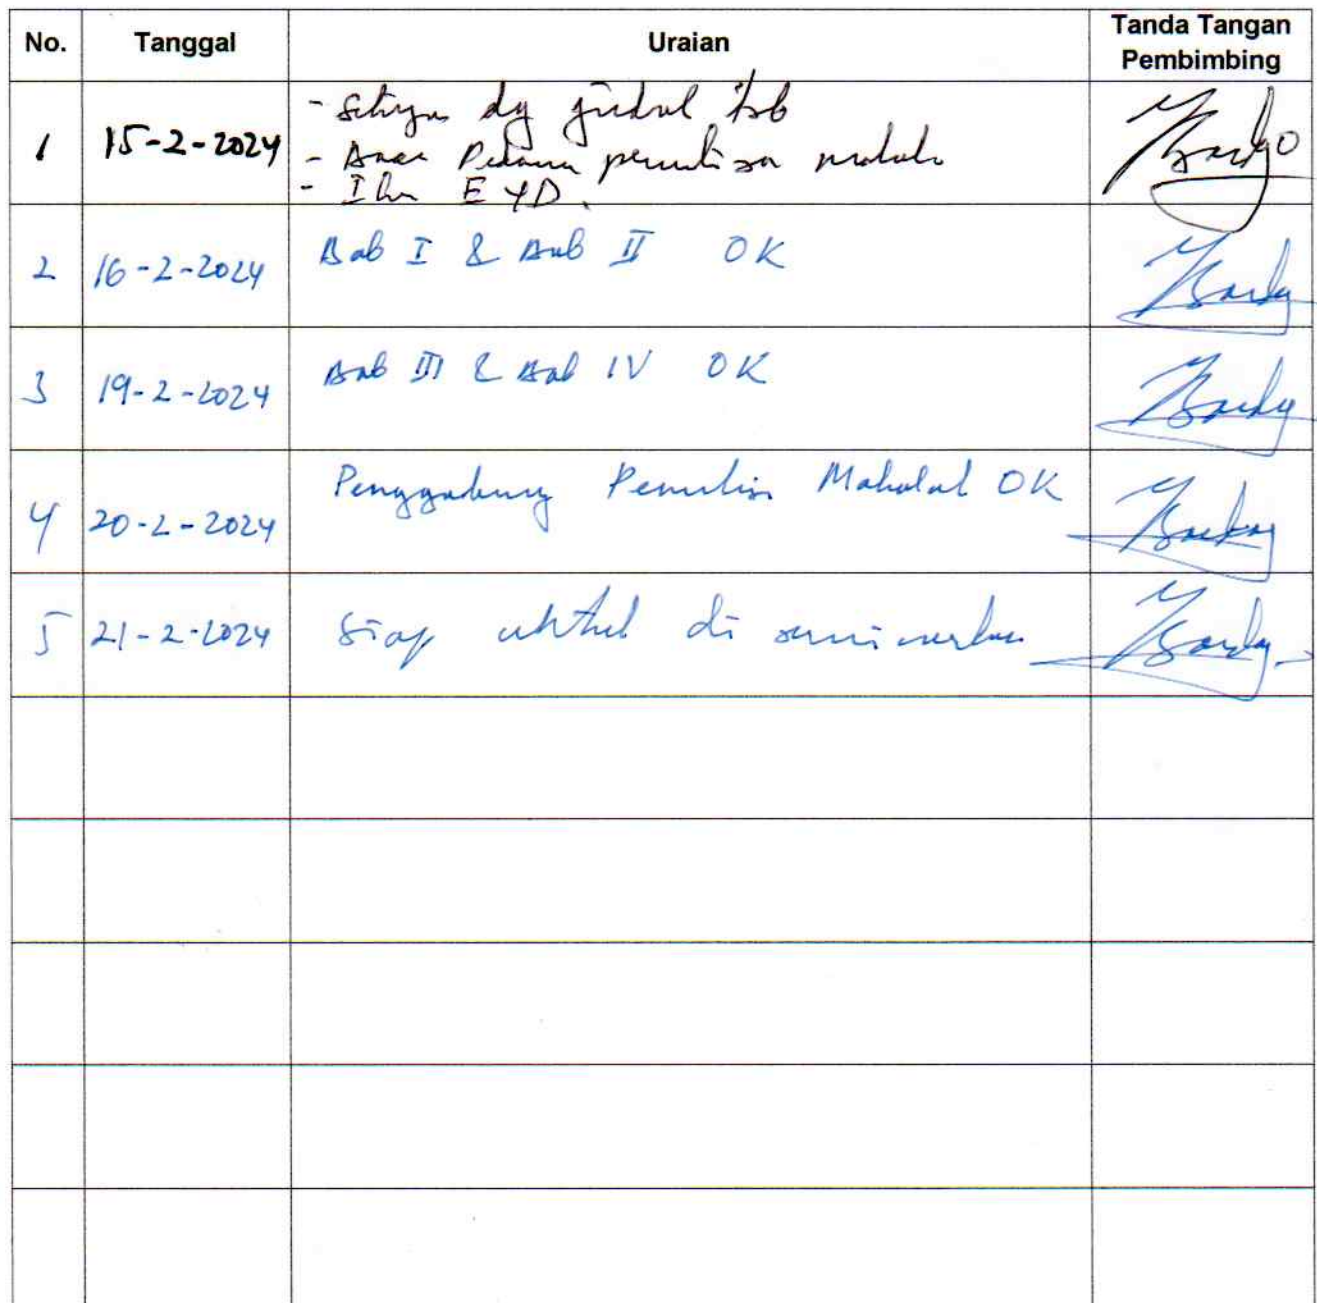 No. Tanggal Uraian Tanda Tangan Pembimbing
1 15-2-2024 - Setuju dg judul tsb
- Baca Pedoman penulisan makalah
- Ikuti EYD.
2 16-2-2024 Bab I & Bab II OK
3 19-2-2024 Bab III & Bab IV OK
4 20-2-2024 Penggabung Penulisan Makalah OK
5 21-2-2024 Siap untuk di seminarkan